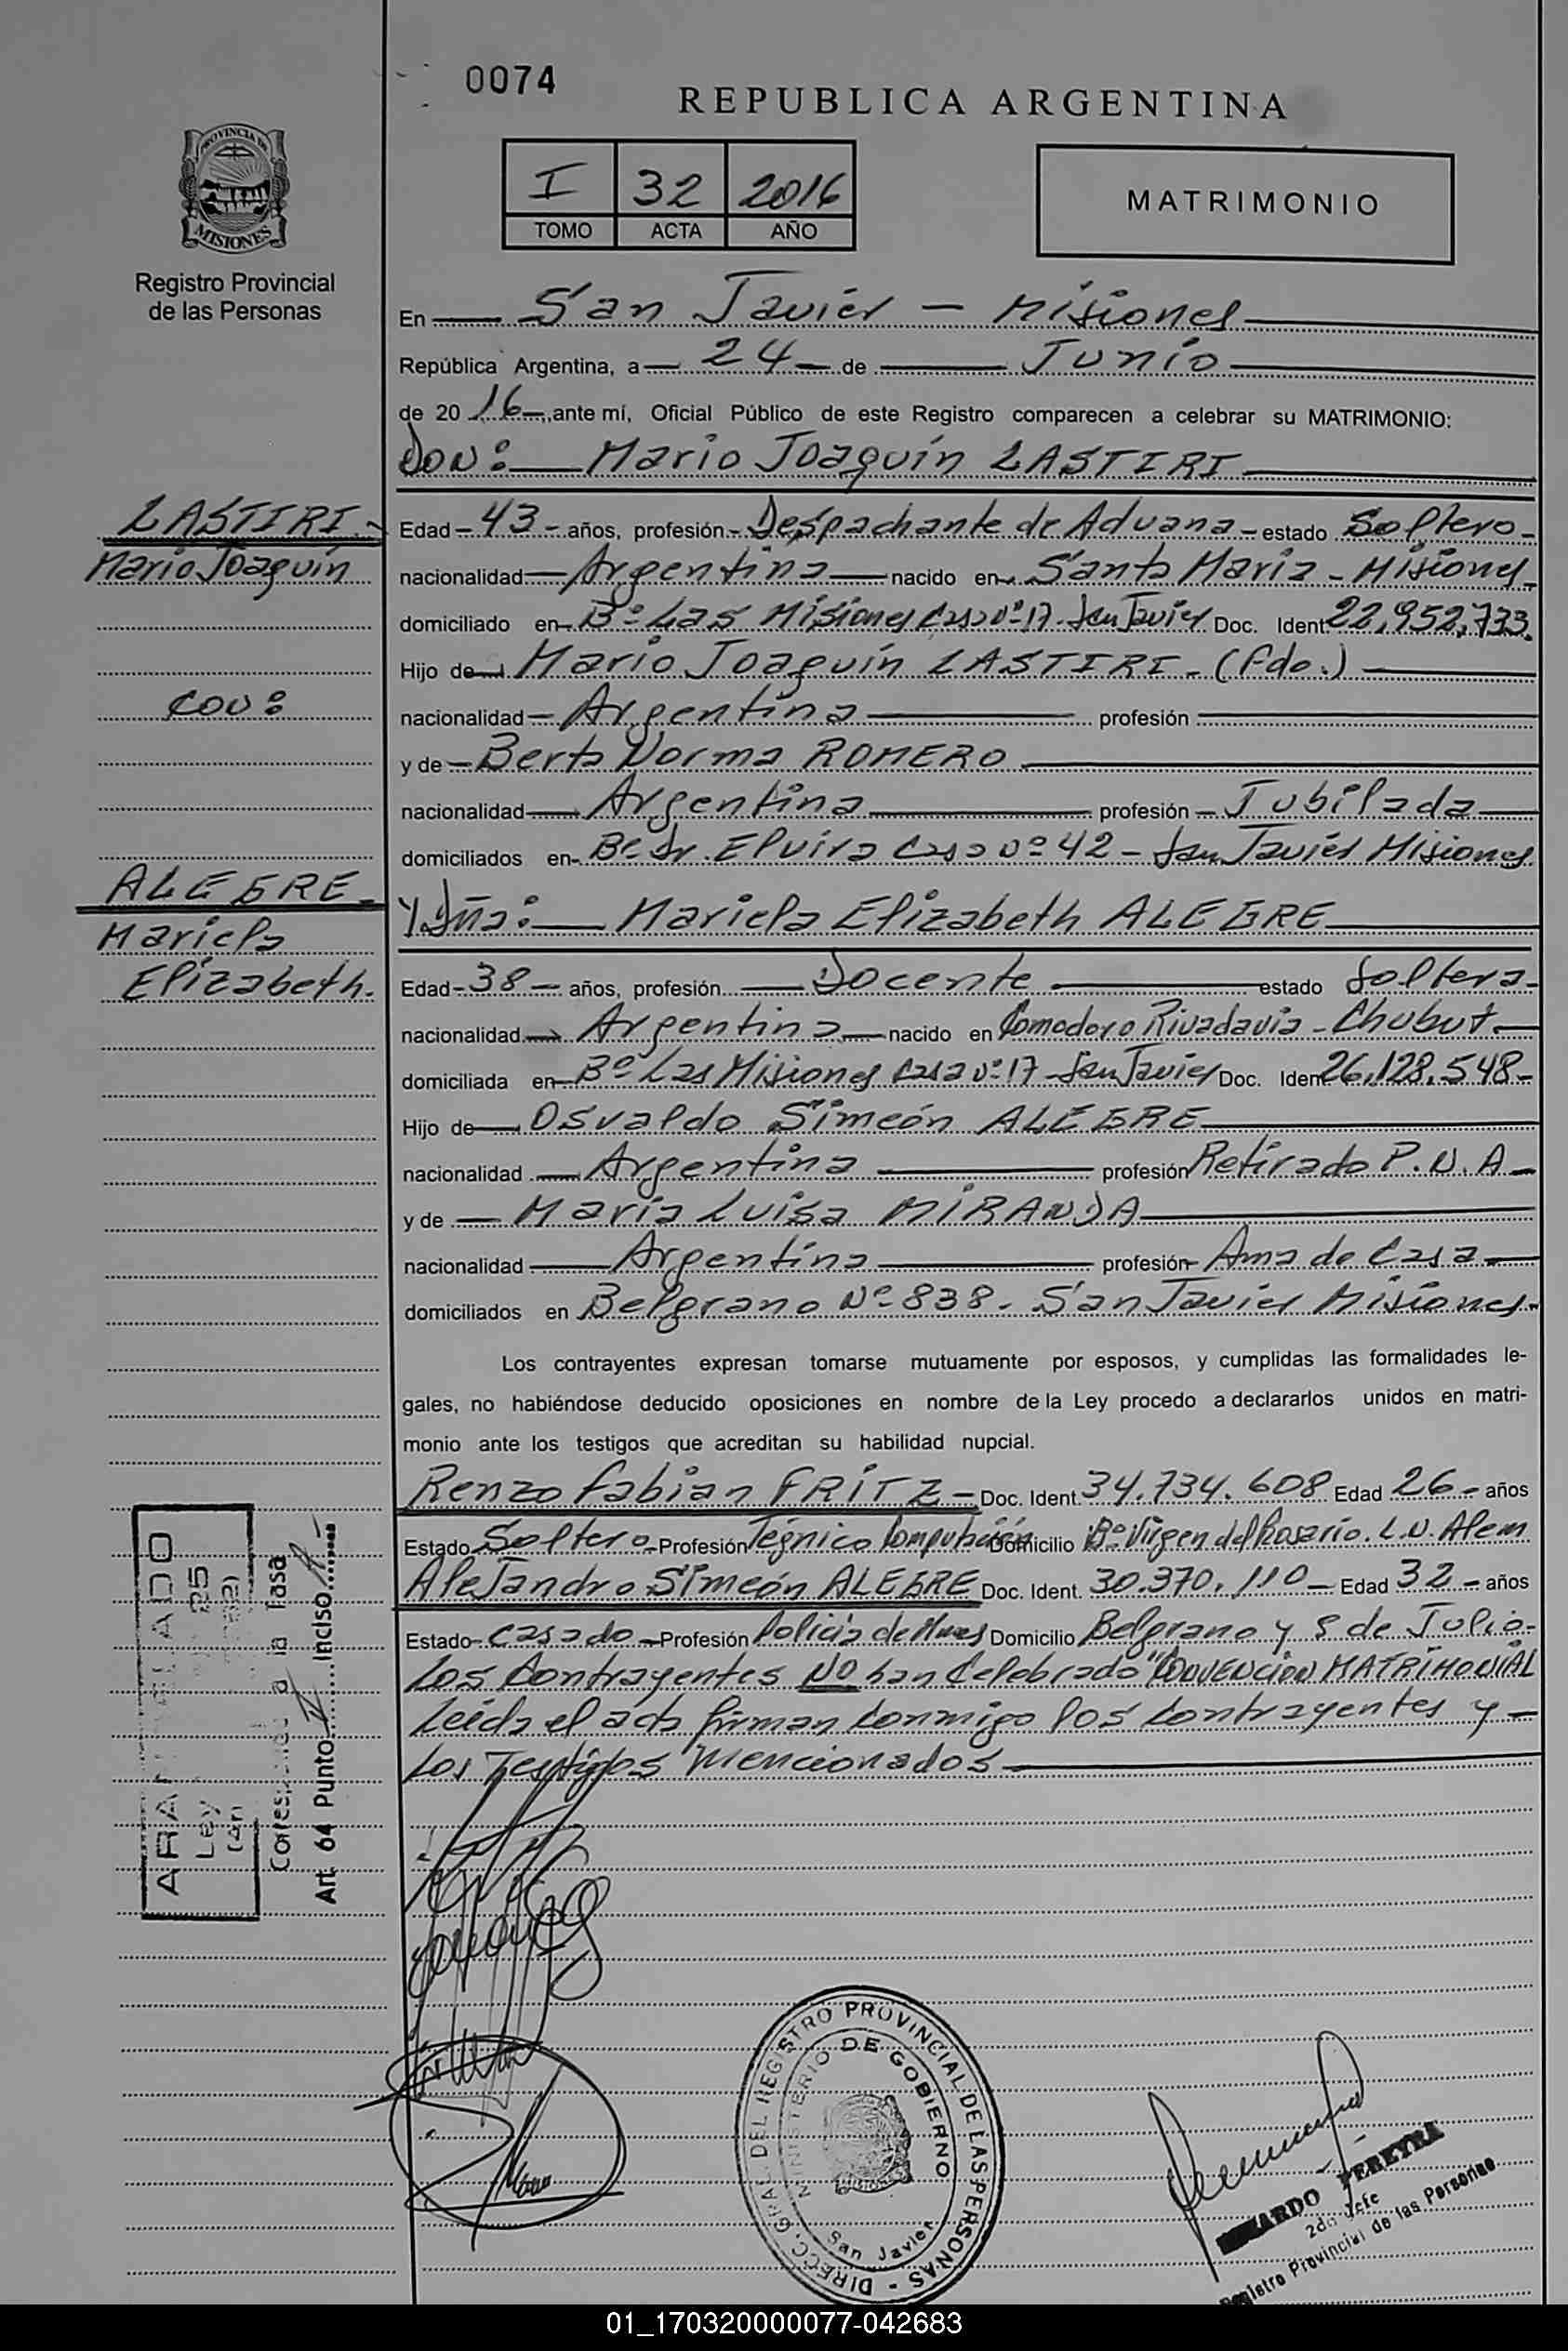 0074
REPUBLICA ARGENTINA
PROVINCIA DE
MISIONES
Registro Provincial
de las Personas
I 32 2016
TOMO ACTA AÑO
MATRIMONIO
En San Javier - Misiones
República Argentina, a 24 de Junio
de 2016, ante mí, Oficial Público de este Registro comparecen a celebrar su MATRIMONIO:
Don: Mario Joaquín LASTIRI
LASTIRI.-
Mario Joaquín
Con:
ALEGRE.-
Mariela
Elizabeth.
Edad - 43 - años, profesión - Despachante de Aduana - estado Soltero -
nacionalidad Argentina nacido en Santa María - Misiones -
domiciliado en Bº Las Misiones Casa Nº 17 - San Javier Doc. Ident. 22,952,733.
Hijo de Mario Joaquín LASTIRI - (fdo.)
nacionalidad - Argentina profesión
y de - Berta Norma ROMERO
nacionalidad Argentina profesión - Jubilada
domiciliados en - Elvira Casa Nº 42 - San Javier Misiones
Y Dña: Mariela Elizabeth ALEGRE
Edad - 38 - años, profesión Docente estado Soltera -
nacionalidad Argentina nacido en Comodoro Rivadavia - Chubut -
domiciliada en Bº Las Misiones Casa Nº 17 - San Javier Doc. Ident 26,128,548 -
Hijo de Osvaldo Simeón ALEGRE
nacionalidad Argentina profesión Retirado P.N.A -
y de María Luisa MIRANDA
nacionalidad Argentina profesión Ama de Casa
domiciliados en Belgrano Nº 838 - San Javier Misiones -
Los contrayentes expresan tomarse mutuamente por esposos, y cumplidas las formalidades le-
gales, no habiéndose deducido oposiciones en nombre de la Ley procedo a declararlos unidos en matri-
monio ante los testigos que acreditan su habilidad nupcial.
Renzo Fabian FRITZ - Doc. Ident. 34.734.608 Edad 26 - años
Estado Soltero - Profesión Tégnico Computación Domicilio Bº Virgen del Rosario. L.N. Alem
Alejandro Simeón ALEGRE Doc. Ident. 30.370.110 - Edad 32 - años
Estado - Casado - Profesión Policía de Domicilio Belgrano y de Julio -
Los Contrayentes NO han Celebrado "CONVENCIÓN MATRIMONIAL
Leída el acta firman conmigo los contrayentes y -
los Testigos mencionados
Ley
a la Tasa
Art. 64 Punto II Inciso A
DIRECC. GRAL. DEL REGISTRO PROVINCIAL DE LAS PERSONAS -
MINISTERIO DE GOBIERNO
San Javier
PEREYRA
2do Jefe
Registro Provincial de las Personas
01_170320000077-042683